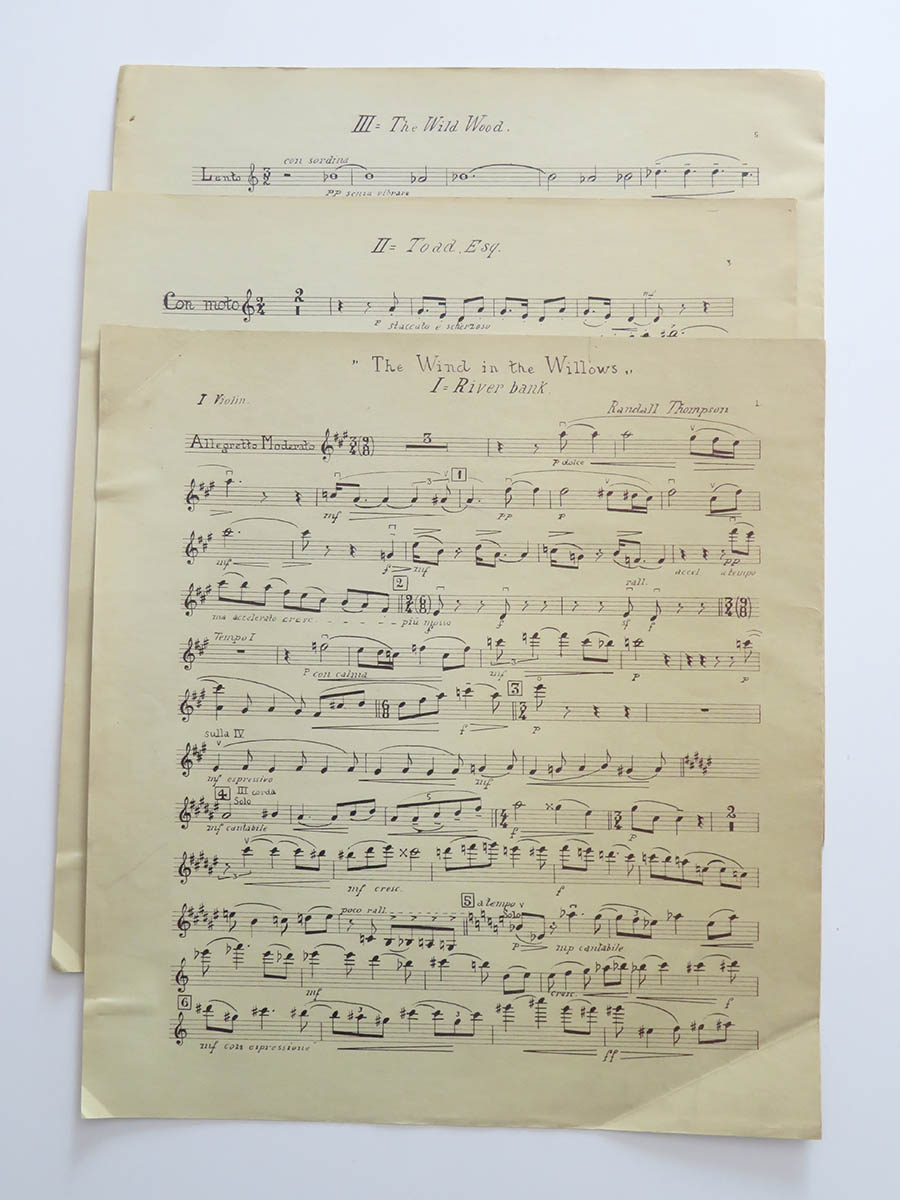 III = The Wild Wood.
5
con sordina
Lento 3 2
pp senza vibrare
II = Toad, Esq.
Con moto 2 4 2 1
mf
p staccato e scherzoso
"The Wind in the Willows"
I = River bank.
I Violin.
Randall Thompson
1
Allegretto Moderato 3 4 (9 8) 3
p dolce
3 1
mf pp p
mf f mf accel. pp a tempo
2 rall.
ma accelerato cresc. più mosso f f sf f
2 4 (6 8) 3 4 (9 8)
Tempo I
p con calma mf 3 p p
3
6 8 f 3 4 p
sulla IV
mf espressivo mf
4 III corda
Solo 5
mf cantabile 4 4 f 3 4 p 2 1
mf cresc. f
poco rall. 5 a tempo
Solo 3
p mp cantabile
mf cresc. f
6
3 3
mf con espressione ff